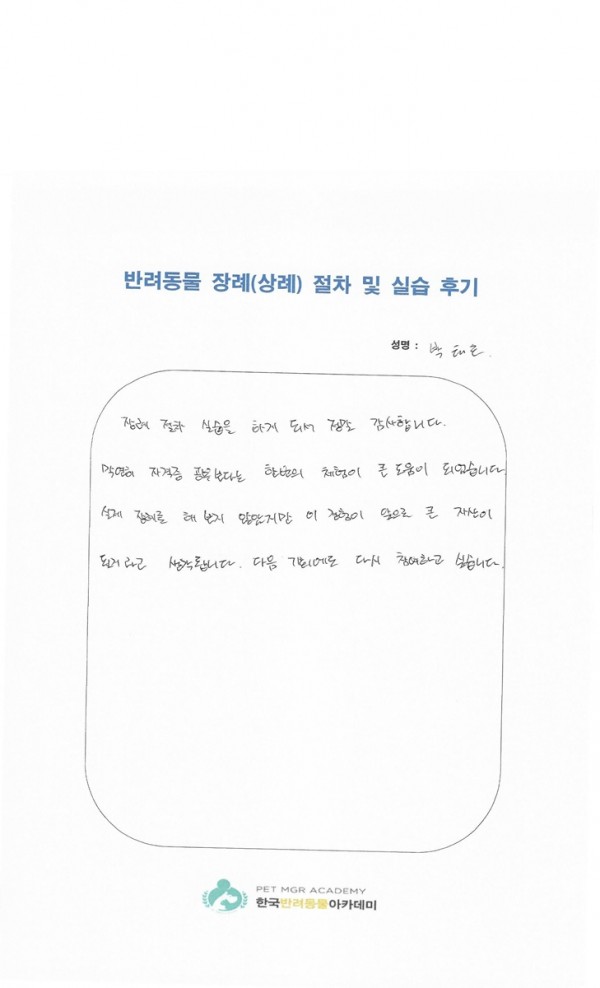 반려동물 장례(상례) 절차 및 실습 후기
성명 : 박태
장례 절차 실습을 하게 되서 정말 감사합니다.
막연히 자격증 공부보다는 한번의 체험이 큰 도움이 되었습니다
실제 장례를 해 보지 않았지만 이 경험이 앞으로 큰 자산이
될거라고 생각합니다. 다음 기회에도 다시 참여하고 싶습니다.
PET MGR ACADEMY
한국반려동물아카데미